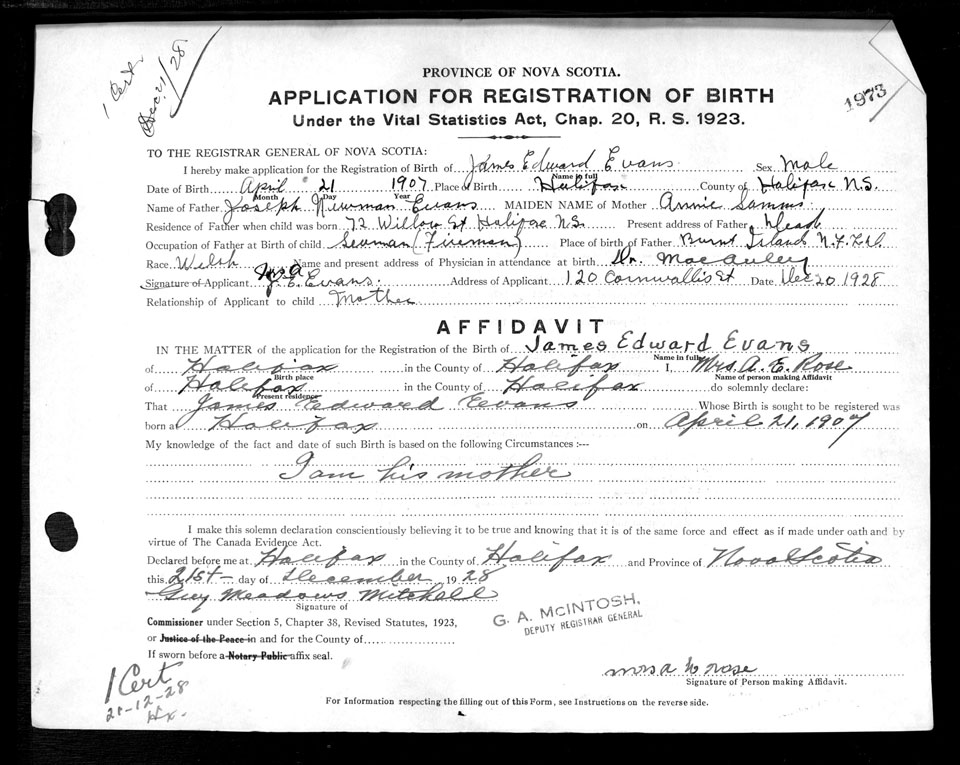 1 Cert
Dec. 21/28
PROVINCE OF NOVA SCOTIA.
APPLICATION FOR REGISTRATION OF BIRTH
1973
Under the Vital Statistics Act, Chap. 20, R. S. 1923.
TO THE REGISTRAR GENERAL OF NOVA SCOTIA:
I hereby make application for the Registration of Birth of James Edward Evans Sex Male
Name in full
Date of Birth April 21 1907 Place of Birth Halifax County of Halifax N.S.
Month Day Year
Name of Father Joseph Newman Evans MAIDEN NAME of Mother Annie Samms
Residence of Father when child was born 72 Willow St Halifax N.S. Present address of Father Dead
Occupation of Father at Birth of child Seaman (Fireman) Place of birth of Father Burnt Island N.F.L.D.
Race Welsh Name and present address of Physician in attendance at birth Dr. MacAuley
Mrs A
Signature of Applicant J. E. Evans. Address of Applicant 120 Cornwallis St Date Dec 20 1928
Relationship of Applicant to child Mother
AFFIDAVIT
IN THE MATTER of the application for the Registration of the Birth of James Edward Evans
Name in full
of Halifax in the County of Halifax I, Mrs. A. E. Rose
Birth place Name of person making Affidavit
of Halifax in the County of Halifax do solemnly declare:
Present residence
That James Edward Evans Whose Birth is sought to be registered was
born at Halifax on April 21, 1907
My knowledge of the fact and date of such Birth is based on the following Circumstances :--
I am his mother
I make this solemn declaration conscientiously believing it to be true and knowing that it is of the same force and effect as if made under oath and by
virtue of The Canada Evidence Act.
Declared before me at Halifax in the County of Halifax and Province of Nova Scotia
this 21st day of December 1928
Guy Meadows Mitchell
Signature of
Commissioner under Section 5, Chapter 38, Revised Statutes, 1923,
or Justice of the Peace in and for the County of
If sworn before a Notary Public affix seal.
G. A. McINTOSH,
DEPUTY REGISTRAR GENERAL
1 Cert
21-12-28
Hx.
Mrs A E Rose
Signature of Person making Affidavit.
For Information respecting the filling out of this Form, see Instructions on the reverse side.